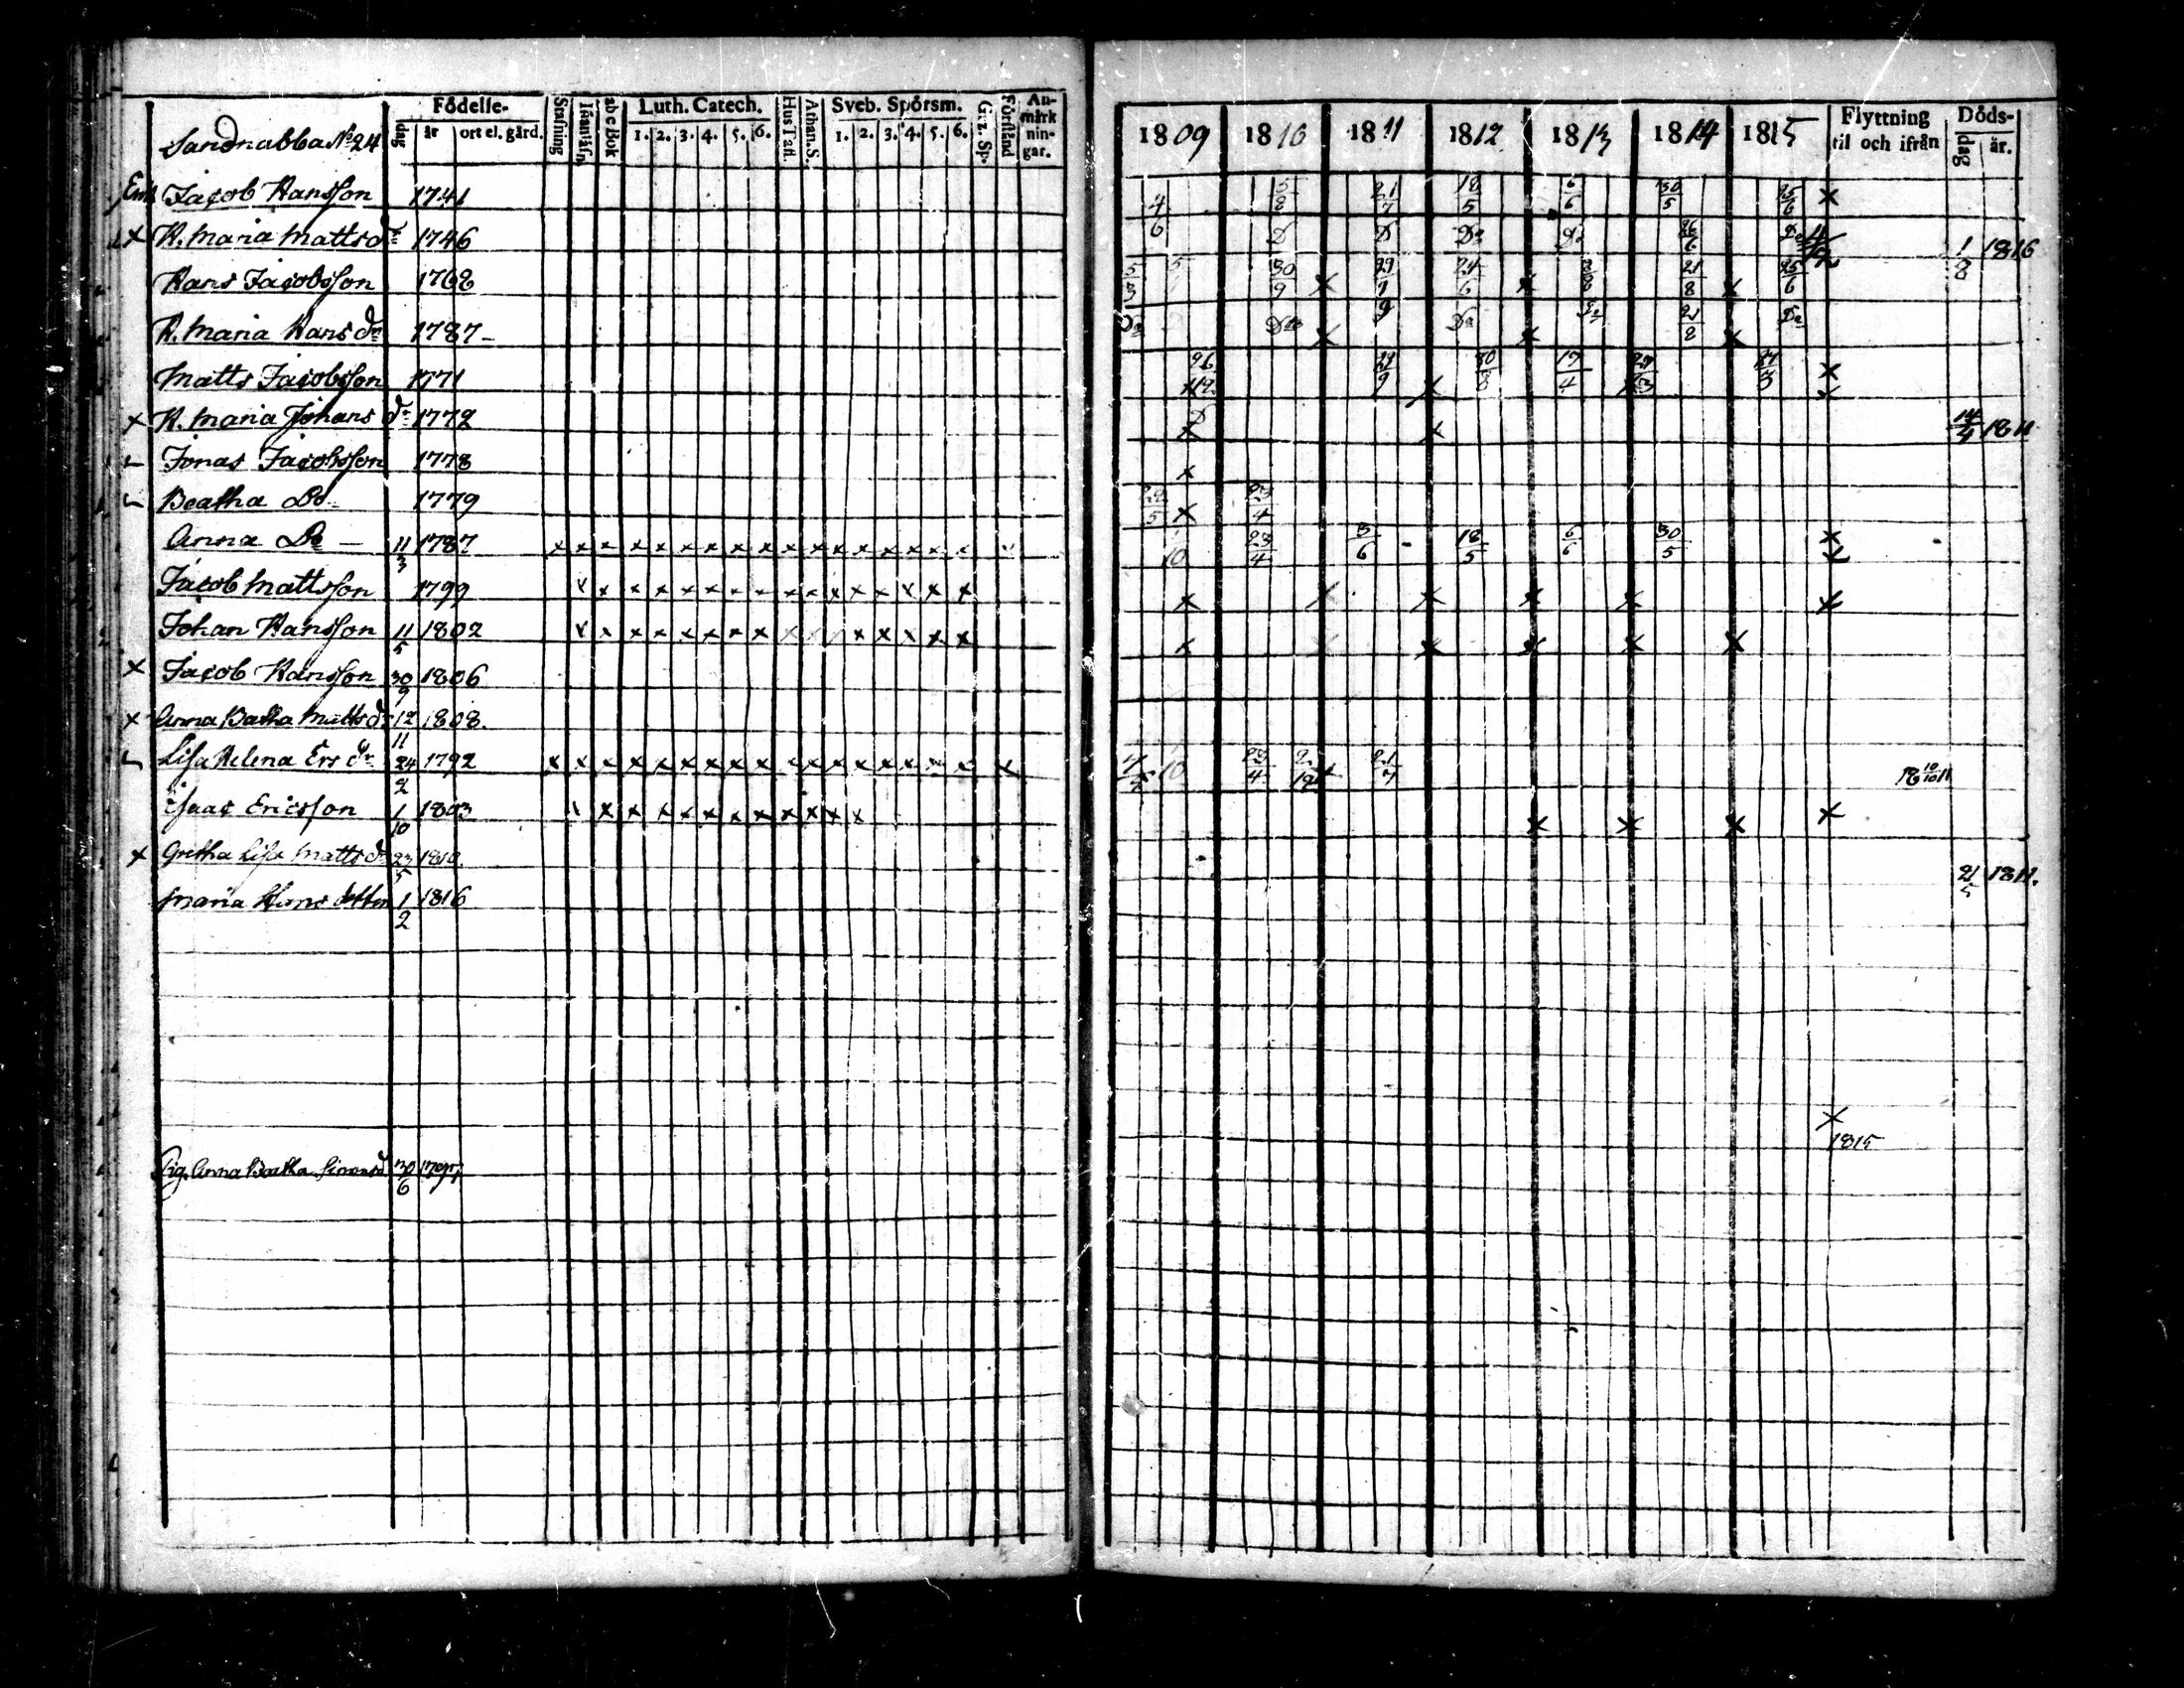 Födelse-
Sandnabba No 24 dag år ort el. gård. Stafning Innanläsn. abc Bok Luth. Catech. 1. 2. 3. 4. 5. 6. Hus Tafl. Athan. S. Sveb. Spörsm. 1. 2. 3. 4. 5. 6. Gez. Sp. Förstånd An-märk nin-gar.
1809 1810 1811 1812 1813 1814 1815 Flyttning til och ifrån Döds- dag år.
Jacob Hansson 1741 4/6 5/8 21/7 18/5 6/6 30/5 25/6 x
x H. Maria Mattsdr 1746 D D Do Do 26/6 Do 1/8 1816
Hans Jacobsson 1768 5/3 30/9 x 29/9 24/6 x 21/8 x 25/6
H. Maria Hansdr 1787 Do Do x Do x 21/8 x Do
Matts Jacobsson 1771 29/9 x 17/4 x
x H. Maria Johansdr 1772 D x x 14/4 1811
Jonas Jacobsson 1778 x
Beatha Do 1779 x 23/4
Anna Do 11/3 1787 x x x x x x x x x x x x x x x x x 10 23/4 3/6 18/5 6/6 30/5 x
Jacob Mattsson 1799 x x x x x x x x x x x x x x x x x x x x x x
Johan Hansson 11/5 1802 x x x x x x x x x x x x x x x x x x x x x x x
x Jacob Hansson 30/9 1806
x Anna Beatha Mattsdr 12/11 1808.
Lisa Helena Ersdr 24/2 1792 x x x x x x x x x x x x x x x x x x 10 23/4 21/7 18 10/10 11
Isaac Ericsson 1/10 1803 x x x x x x x x x x x x x x x x
x Gretha Lisa Mattsdr 23/5 1810. 21/5 1811.
Maria Hansdotter 1/2 1816
x
1815
Anna Beatha Simonsd 30/6 1797